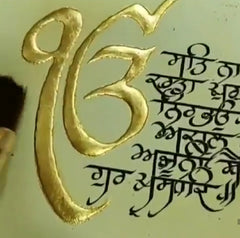 ੴ
ਸਤਿ ਨਾ
ਕਰਤਾ ਪੁਰ
ਨਿਰਭਉ
ਅਕਾਲ
ਅਜੂਨੀ ਸੈ
ਗੁਰ ਪ੍ਰਸਾਦਿ ॥